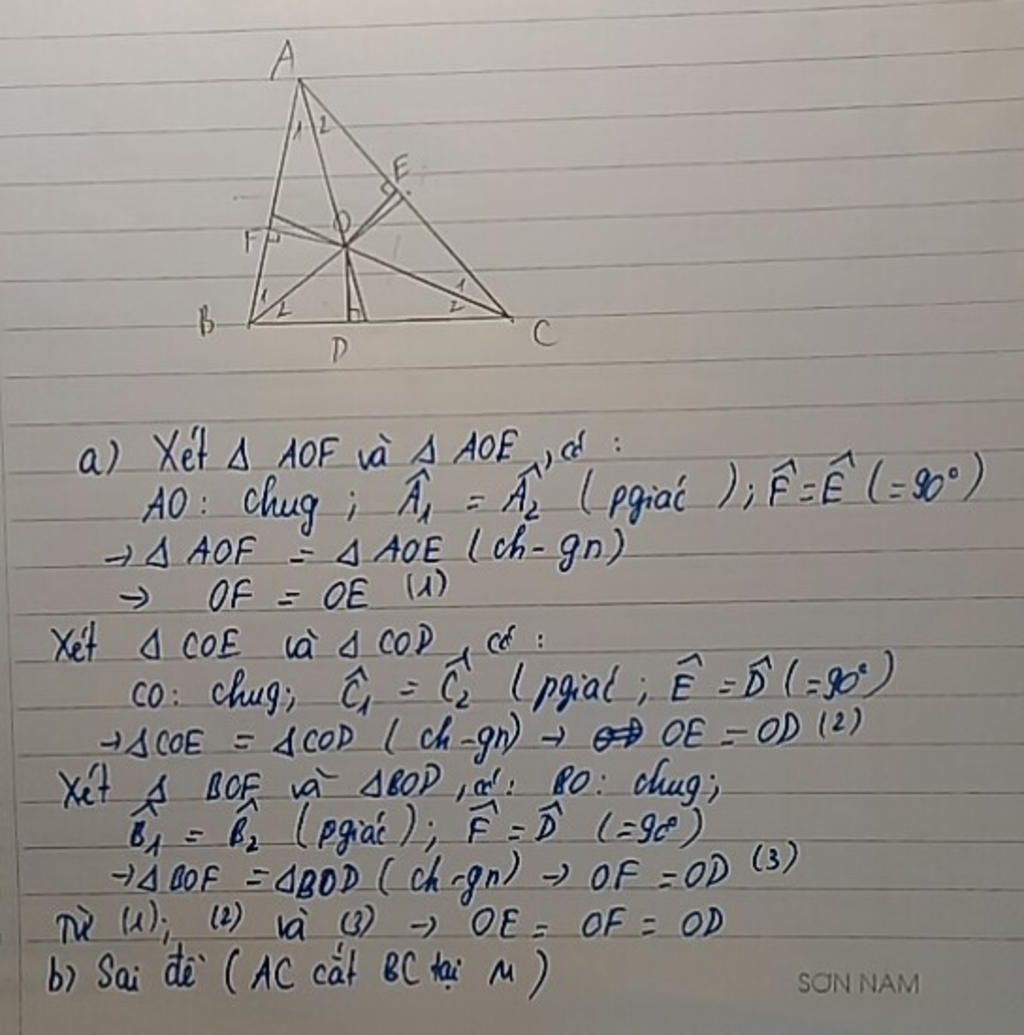 A
1 2
E
O
F
1 2
1
2
B
D
C
a) Xét Δ AOF và Δ AOE, có :
AO : chug ; Â₁ = Â₂ ( pgiác ) ; F̂ = Ê ( = 90° )
→ Δ AOF = Δ AOE ( ch - gn )
→ OF = OE (1)
Xét Δ COE và Δ COD, có :
CO : chug ; Ĉ₁ = Ĉ₂ ( pgiác ; Ê = D̂ ( = 90° )
→ Δ COE = Δ COD ( ch - gn ) → OE = OD (2)
Xét Δ BOF và Δ BOD, có : BO : chug ;
B̂₁ = B̂₂ ( pgiác ) ; F̂ = D̂ ( = 90° )
→ Δ BOF = Δ BOD ( ch - gn ) → OF = OD (3)
Từ (1) ; (2) và (3) → OE = OF = OD
b) Sai đề ( AC cắt BC tại M )
SƠN NAM